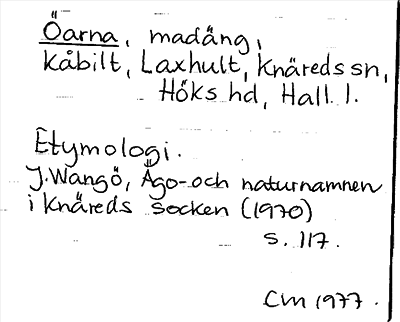 Öarna, madäng,
Kåbilt, Laxhult, Knäreds sn,
Höks hd, Hall. l.
Etymologi.
J. Wangö, Ägo- och naturnamnen
i Knäreds socken (1970)
s. 117.
CM 1977.